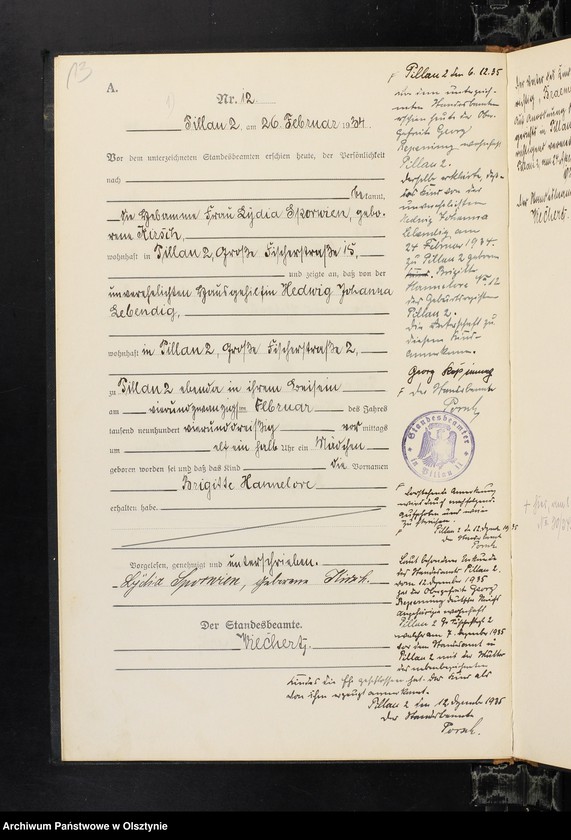 13
A.
Nr. 12.
Pillau 2, am 26. Februar 1934.
Vor dem unterzeichneten Standesbeamten erschien heute, der Persönlichkeit
nach
bekannt,
die Hebamme Frau Lydia Sporwien, gebo-
rene Hirsch,
wohnhaft in Pillau 2, Große Fischerstraße 15,
und zeigte an, daß von der
unverehelichten Hausgehilfin Hedwig Johanna
Lebendig,
wohnhaft in Pillau 2, Große Fischerstraße 2,
zu Pillau 2 ebenda in ihrem Beisein
am vierundzwanzigsten Februar des Jahres
tausend neunhundert vierunddreißig vor mittags
um elf ein halb Uhr ein Mädchen
geboren worden sei und daß das Kind die Vornamen
Brigitte Hannelore
erhalten habe.
Vorgelesen, genehmigt und unterschrieben.
Lydia Sporwien, geborene Hirsch.
Der Standesbeamte.
Wiechert.
Pillau 2 den 6.12.35
Vor dem unterzeich-
neten Standesbeamten
erschien heute der Ober-
gefreite Georg
wohnhaft
Pillau 2.
Derselbe erklärte, daß
das Kind von der
unverehelichten
Hedwig Johanna
Lebendig am
24 Februar 1934.
zu Pillau 2 geboren
Brigitte
Hannelore Nr. 12
des Geburtsregisters
Pillau 2.
die Vaterschaft zu
diesem Kinde
Georg
Der Standesbeamte
Standesbeamter
in Pillau II
Vorstehende Anerkennung
wird durch nachfolgende
zu streichen.
Pillau 2 den 12. Dezemb 1935
der Standesbeamte
Laut besonderer Urkunde
des Standesamts Pillau 2.
vom 12. Dezember 1935
hat der Obergefreite Georg
wohnhaft
Pillau 2
welcher am 7. Dezember 1935
vor dem Standesamt in
Pillau 2 mit der Mutter
des nebenbezeichneten
Kindes die Ehe geschlossen hat. das Kind als
von ihm erzeugt anerkannt.
Pillau 2 den 12. Dezemb 1935
Der Standesbeamte
Wiechert.
Archiwum Państwowe w Olsztynie